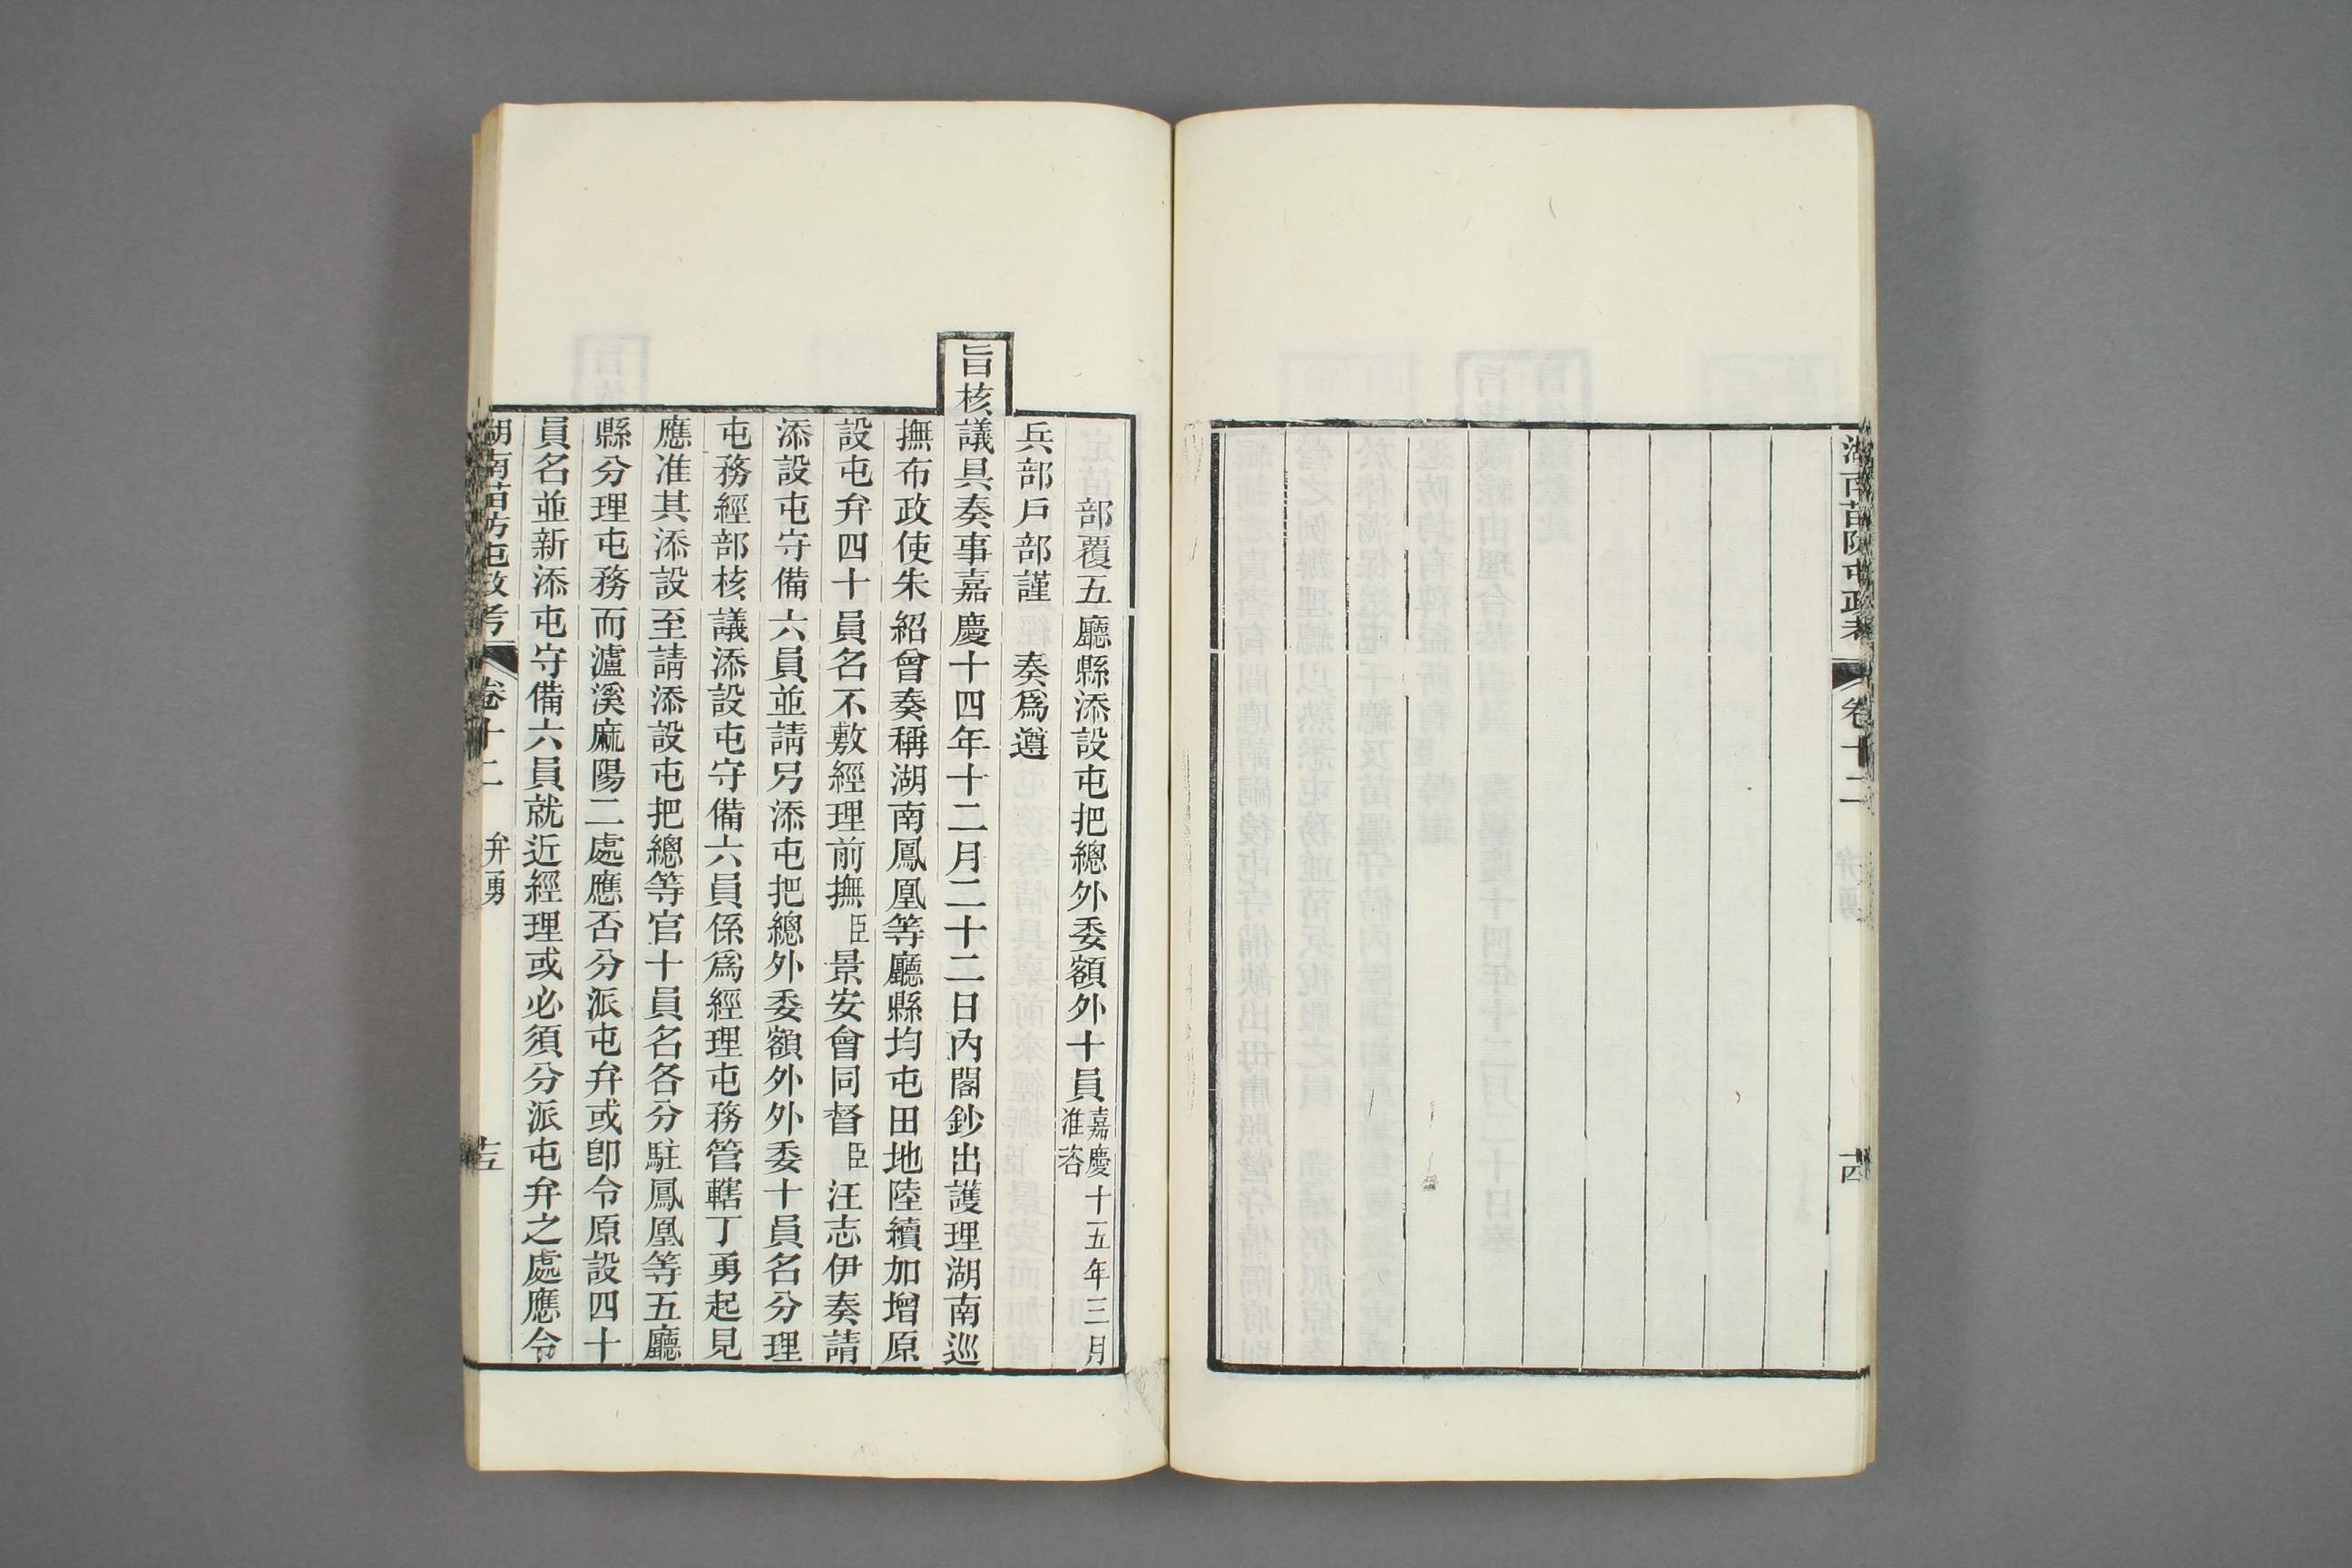 湖南苗防屯政考
卷十二
十四
部覆五廳縣添設屯把總外委額外十員嘉慶十五年三月准咨
兵部戶部謹　奏爲遵
旨核議具奏事嘉慶十四年十二月二十二日內閣鈔出護理湖南巡
撫布政使朱紹曾奏稱湖南鳳凰等廳縣均屯田地陸續加增原
設屯弁四十員名不敷經理前撫臣景安會同督臣汪志伊奏請
添設屯守備六員並請另添屯把總外委額外外委十員名分理
屯務經部核議添設屯守備六員係爲經理屯務管轄丁勇起見
應准其添設至請添設屯把總等官十員名各分駐鳳凰等五廳
縣分理屯務而瀘溪麻陽二處應否分派屯弁或卽令原設四十
員名並新添屯守備六員就近經理或必須分派屯弁之處應令
湖南苗防屯政考
卷十二
弁勇
十五